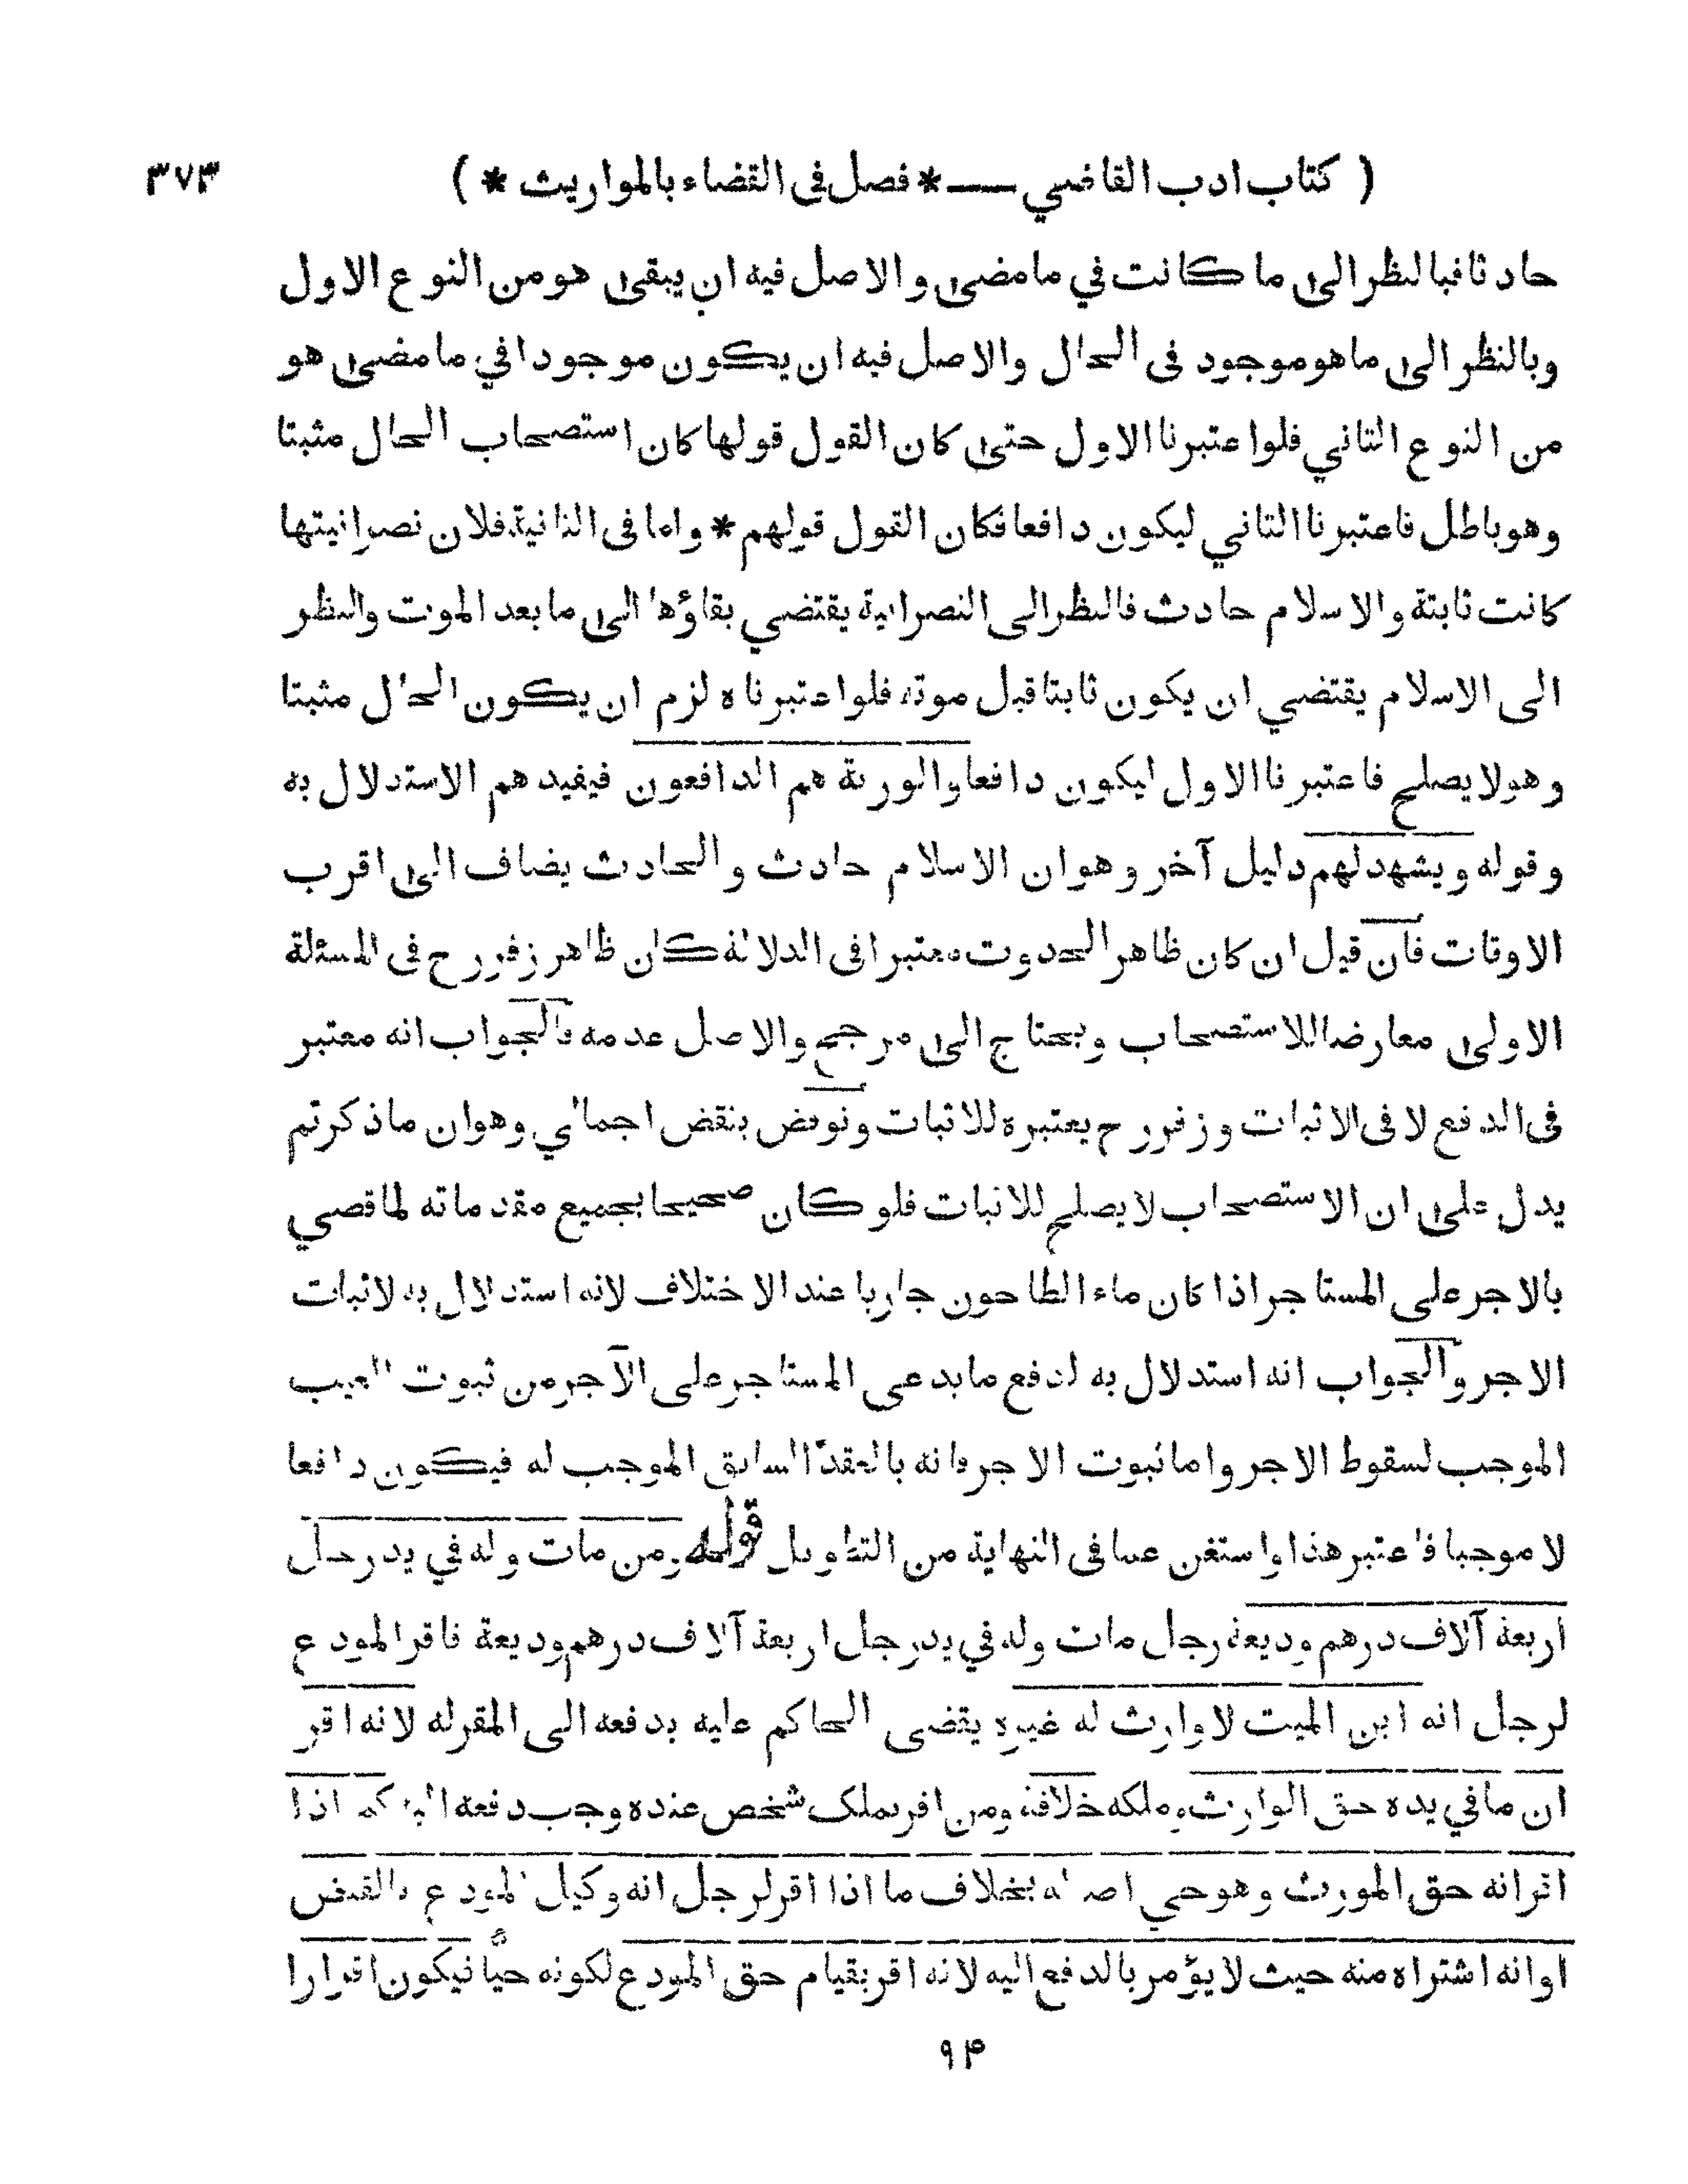 ( كتاب ادب القاضي ــــ * فصل فى القضاء بالمواريث * ) ٣٧٣
حادثا فبالنظر الى ما كانت في ما مضى والاصل فيه ان يبقى هو من النوع الاول
وبالنظر الى ما هو موجود فى الحال والاصل فيه ان يكون موجودا في ما مضى هو
من النوع الثاني فلو اعتبرنا الاول حتى كان القول قولها كان استصحاب الحال مثبتا
وهو باطل فاعتبرنا الثاني ليكون دافعا فكان القول قولهم * واما فى الثانية فلان نصرانيتها
كانت ثابتة والاسلام حادث فالنظر الى النصرانية يقتضي بقاؤها الى ما بعد الموت والنظر
الى الاسلام يقتضي ان يكون ثابتا قبل موته فلو اعتبرناه لزم ان يكون الحال مثبتا
وهو لا يصلح فاعتبرنا الاول ليكون دافعا والورثة هم الدافعون فيفيدهم الاستدلال به
وقوله ويشهد لهم دليل آخر وهو ان الاسلام حادث والحادث يضاف الى اقرب
الاوقات فان قيل ان كان ظاهر الحدوث معتبرا فى الدلالة كان ظاهر زفر رح فى المسئلة
الاولى معارضا للاستصحاب ويحتاج الى مرجح والاصل عدمه فالجواب انه معتبر
فى الدفع لا فى الاثبات وزفر رح يعتبره للاثبات ونوقض بنقض اجمالي وهو ان ما ذكرتم
يدل على ان الاستصحاب لا يصلح للاثبات فلو كان صحيحا بجميع مقدماته لما قضي
بالاجر على المستاجر اذا كان ماء الطاحون جاريا عند الاختلاف لانه استدلال به لاثبات
الاجر والجواب انه استدلال به لدفع ما يدعى المستاجر على الآجر من ثبوت العيب
الموجب لسقوط الاجر واما ثبوت الاجر فانه بالعقد السابق الموجب له فيكون دافعا
لا موجبا فاعتبر هذا واستغن عما فى النهاية من التطويل قوله ومن مات وله في يد رجل
اربعة آلاف درهم وديعة رجل مات وله في يد رجل اربعة آلاف درهم وديعة فاقر المودع
لرجل انه ابن الميت لا وارث له غيره يقضى الحاكم عليه بدفعه الى المقر له لانه اقر
ان ما في يده حق الوارث وملكه خلافة ومن اقر بملك شخص عنده وجب دفعه اليه كما اذا
اقر انه حق المورث وهو حي اصالة بخلاف ما اذا اقر لرجل انه وكيل المودع بالقبض
او انه اشتراه منه حيث لا يؤمر بالدفع اليه لانه اقر بقيام حق المودع لكونه حيًّا فيكون اقرارا
٩٤